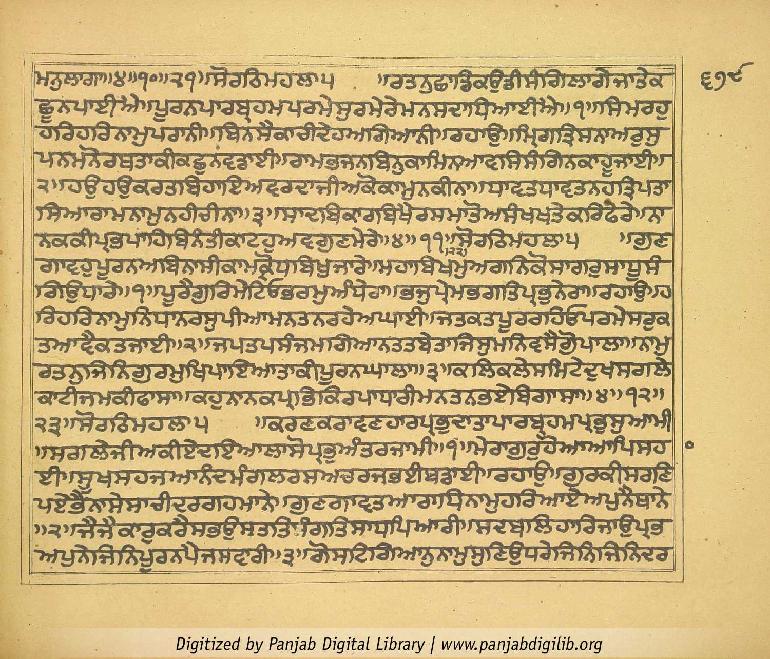 ਮਨੁਲਾਗਾ॥੪॥੧੦॥੨੧॥ਸੋਰਠਿਮਹਲਾ੫ ॥ਰਤਨੁਛਾਡਿਕਉਡੀਸੰਗਿਲਾਗੇਜਾਤੇਕ
੬੧੯
ਛੂਨਪਾਈਐ॥ਪੂਰਨਪਾਰਬ੍ਰਹਮਪਰਮੇਸੁਰਮੇਰੇਮਨਸਦਾਧਿਆਈਐ॥੧॥ਸਿਮਰਹੁ
ਹਰਿਹਰਿਨਾਮੁਪਰਾਨੀ॥ਬਿਨਸੈਕਾਚੀਦੇਹਅਗਿਆਨੀ॥ਰਹਾਉ॥ਮ੍ਰਿਗਤ੍ਰਿਸਨਾਅਰੁਸੁ
ਪਨਮਨੋਰਥਤਾਕੀਕਛੁਨਵਡਾਈ॥ਰਾਮਭਜਨਬਿਨੁਕਾਮਿਨਆਵਸਿਸੰਗਿਨਕਾਹੂਜਾਈ॥
੨॥ਹਉਹਉਕਰਤਬਿਹਾਇਅਵਰਦਾਜੀਅਕੋਕਾਮੁਨਕੀਨਾ॥ਧਾਵਤਧਾਵਤਨਹਤ੍ਰਿਪਤਾ
ਸਿਆਰਾਮਨਾਮੁਨਹੀਚੀਨਾ॥੩॥ਸਾਦਬਿਕਾਰਬਿਖੈਰਸਮਾਤੋਅਸੰਖਖਤੇਕਰਿਫੇਰੇ॥ਨਾ
ਨਕਕੀਪ੍ਰਭਪਾਹਿਬਿਨੰਤੀਕਾਟਹੁਅਵਗੁਣਮੇਰੇ॥੪॥੧੧॥੨੨॥ਸੋਰਠਿਮਹਲਾ੫ ॥ਗੁਣ
ਗਾਵਹੁਪੂਰਨਅਬਿਨਾਸੀਕਾਮਕ੍ਰੋਧਬਿਖੁਜਾਰੇ॥ਮਹਾਬਿਖਮੁਅਗਨਿਕੋਸਾਗਰੁਸਾਧੂਸੰ
ਗਿਉਧਾਰੇ॥੧॥ਪੂਰੈਗੁਰਿਮੇਟਿਓਭਰਮੁਅੰਧੇਰਾ॥ਭਜੁਪ੍ਰੇਮਭਗਤਿਪ੍ਰਭੁਨੇਰਾ॥ਰਹਾਉ॥ਹ
ਰਿਹਰਿਨਾਮੁਨਿਧਾਨਰਸੁਪੀਆਮਨਤਨਰਹੇਅਘਾਈ॥ਜਤਕਤਪੂਰਿਰਹਿਓਪਰਮੇਸਰੁਕ
ਤਆਵੈਕਤਜਾਈ॥੨॥ਜਪਤਪਸੰਜਮਗਿਆਨਤਤਬੇਤਾਜਿਸੁਮਨਿਵਸੈਗੋੁਪਾਲਾ॥ਨਾਮੁ
ਰਤਨੁਜਿਨਿਗੁਰਮੁਖਿਪਾਇਆਤਾਕੀਪੂਰਨਘਾਲਾ॥੩॥ਕਲਿਕਲੇਸਮਿਟੇਦੁਖਸਗਲੇ
ਕਾਟੀਜਮਕੀਫਾਸਾ॥ਕਹੁਨਾਨਕਪ੍ਰਭਿਕਿਰਪਾਧਾਰੀਮਨਤਨਭਏਬਿਗਾਸਾ॥੪॥੧੨॥
੨੩॥ਸੋਰਠਿਮਹਲਾ੫ ॥ਕਰਣਕਰਾਵਣਹਾਰਪ੍ਰਭੁਦਾਤਾਪਾਰਬ੍ਰਹਮਪ੍ਰਭੁਸੁਆਮੀ
॥ਸਗਲੇਜੀਅਕੀਏਦਇਆਲਾਸੋਪ੍ਰਭੁਅੰਤਰਜਾਮੀ॥੧॥ਮੇਰਾਗੁਰੁਹੋਆਆਪਿਸਹ
ਈ॥ਸੂਖਸਹਜਆਨੰਦਮੰਗਲਰਸਅਚਰਜਭਈਬਡਾਈ॥ਰਹਾਉ॥ਗੁਰਕੀਸਰਣਿ
ਪਏਭੈਨਾਸੇਸਾਚੀਦਰਗਹਮਾਨੇ॥ਗੁਣਗਾਵਤਆਰਾਧਿਨਾਮੁਹਰਿਆਏਅਪੁਨੈਥਾਨੇ
॥੨॥ਜੈਜੈਕਾਰੁਕਰੈਸਭਉਸਤਤਿਸੰਗਤਿਸਾਧਪਿਆਰੀ॥ਸਦਬਲਿਹਾਰਿਜਾਉਪ੍ਰਭ
ਅਪੁਨੇਜਿਨਿਪੂਰਨਪੈਜਸਵਾਰੀ॥੩॥ਗੋਸਟਿਗਿਆਨੁਨਾਮੁਸੁਣਿਉਧਰੇਜਿਨਿਜਿਨਿਦਰ
Digitized by Panjab Digital Library | www.panjabdigilib.org